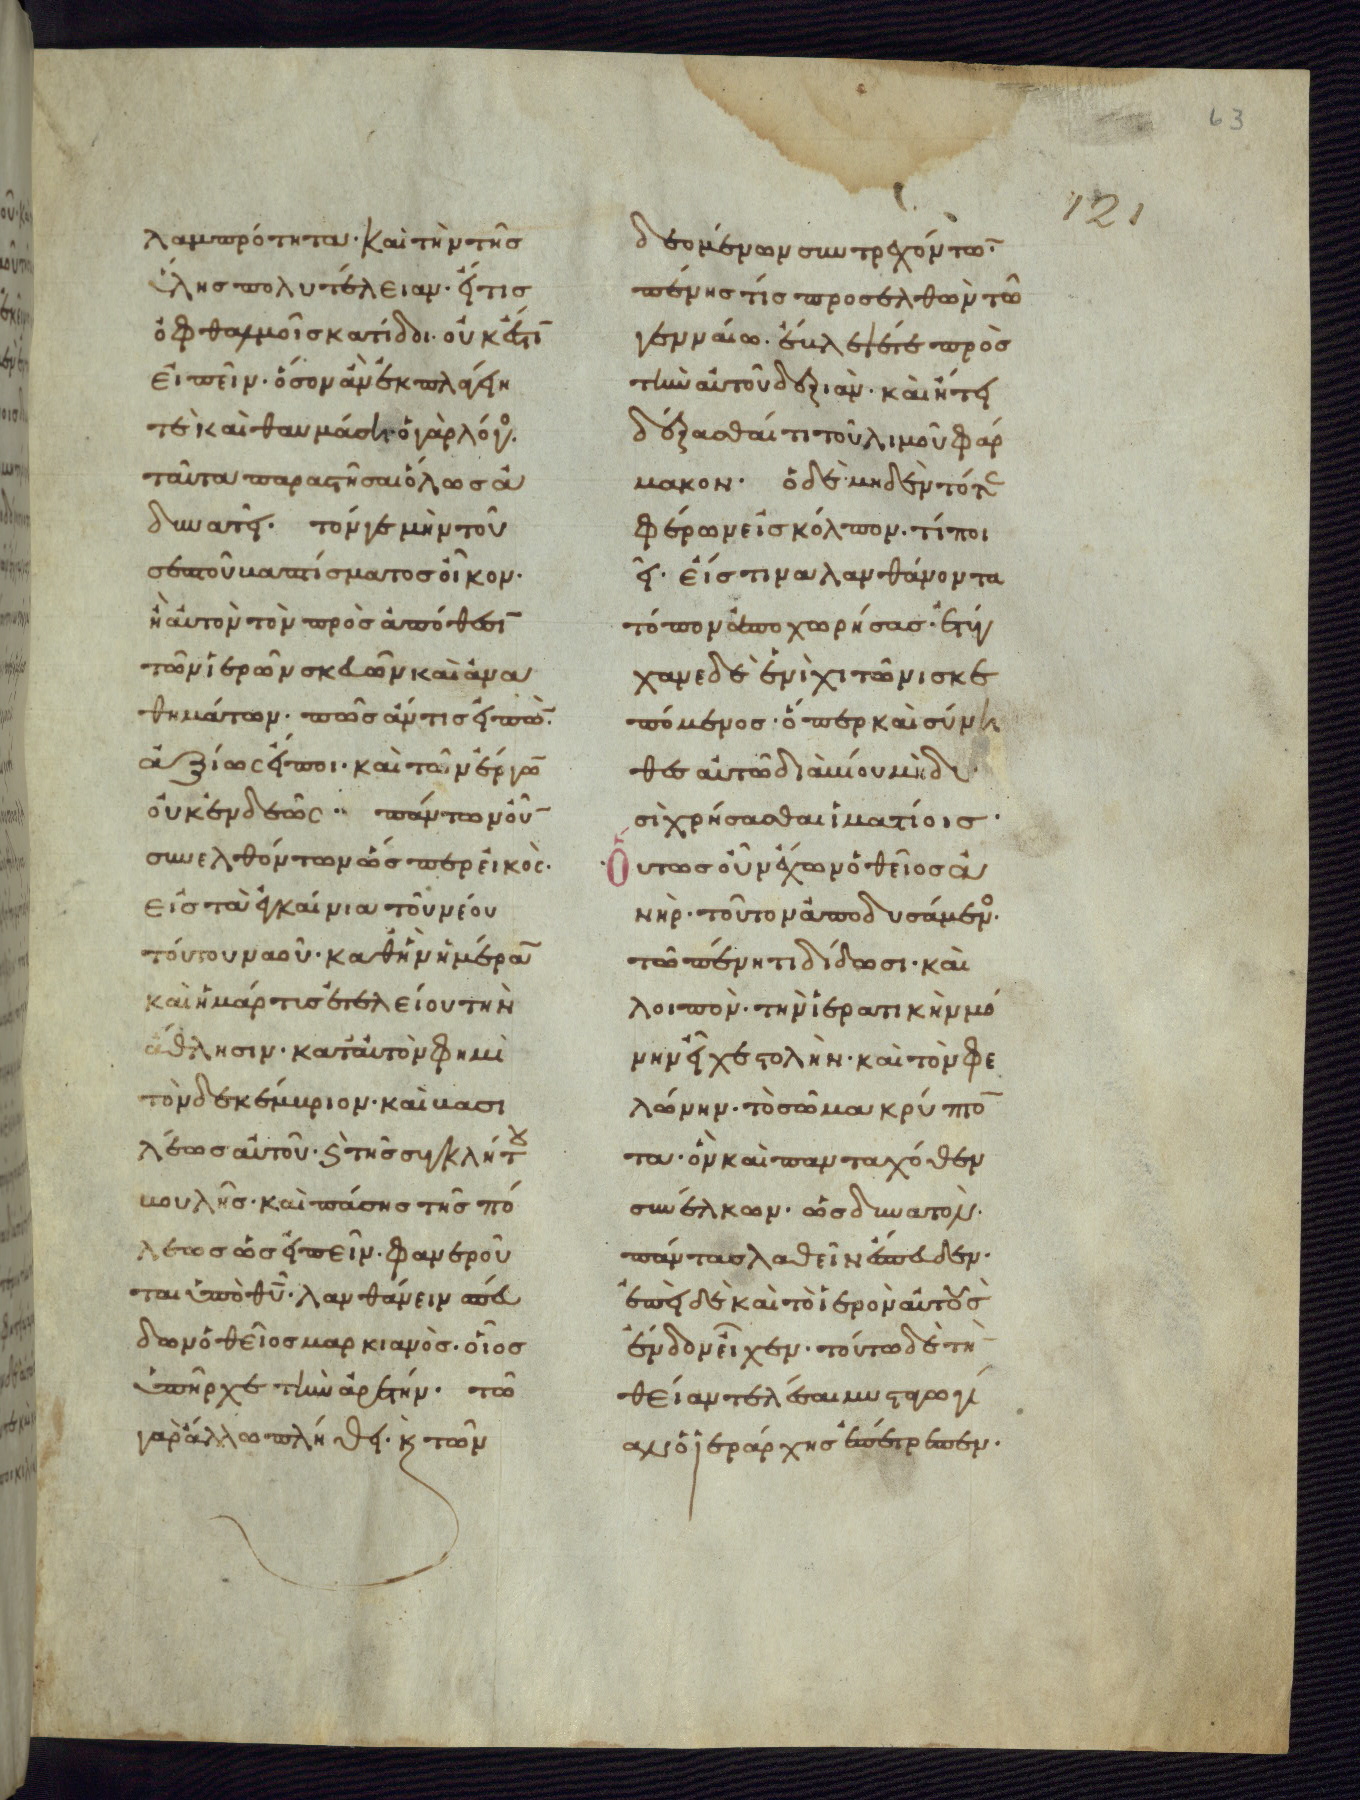 63
121
λαμπρότητα· καὶ τὴν τῆς
ὕλης πολυτέλειαν· εἴ τις
ὀφθαλμοῖς κατίδοι· οὐκ ἔστι
εἰπεῖν· ὅσον ἂν ἐκπλαγείη
τὲ καὶ θαυμάσει· ὁ γὰρ λόγος
ταῦτα παραστῆσαι ὅλως ἀ
δυνατεῖ· τόν γε μὴν τοῦ
σεπτοῦ βαπτίσματος οἶκον·
ἢ αὐτὸν τὸν πρὸς ἀπόθεσι
τῶν ἱερῶν σκευῶν καὶ ἀνα
θημάτων· πῶς ἄν τις εἰπὼν
ἀξίως εἴποι· καὶ τῶν ἔργω
οὐκ ἐνδεῶς·· πάντων οὖν
συνελθόντων ὥσπερ εἰκὸς·
εἰς τὰ ἐγκαίνια τοῦ νέου
τούτου ναοῦ· καθ' ἣν ἡμέραν
καὶ ἡ μάρτυς ἐτελείου τὴν
ἄθλησιν· κατ' αὐτὸν φημὶ
τὸν δεκέμβριον· καὶ βασι
λέως αὐτοῦ· καὶ τῆς συγκλήτου
βουλῆς· καὶ πάσης τῆς πό
λεως ὡς εἰπεῖν· φανεροῦ
ται ὑπὸ θυ· λανθάνειν σπεύ
δων ὁ θεῖος μαρκιανὸς· οἷος
ὑπῆρχε τὴν ἀρετήν· τῶ
γὰρ ἄλλω πλήθει· καὶ τῶν
δεομένων συντρεχόντων·
πένης τίς προσελθὼν τῶ
γενναίω· ἔβλεψέ τε πρὸς
τὴν αὐτοῦ δεξιὰν· καὶ ἤτει
δέξασθαί τι τοῦ λιμοῦ φάρ
μακον· ὁ δὲ μηδὲν τότε
φέρων εἰς κόλπον· τί ποι
εῖ· εἴς τινα λανθάνοντα
τόπον ἀποχωρήσας· ἐτύγ
χανε δὲ ἑνὶ χιτῶνι σκε
πόμενος· ὅπερ καὶ σύνη
θες αὐτῶ διὰ βίου μὴ δυ
σὶ χρήσασθαι ἱματίοις·
Οὕτως οὖν ἔχων ὁ θεῖος ἀ
νὴρ· τοῦτον ἀποδυσάμενος
τῶ πένητι δίδωσι· καὶ
λοιπὸν· τὴν ἱερατικὴν μό
νην εἶχε στολὴν· καὶ τὸν φε
λώνην· τὸ σῶμα κρύπτον
τα· ὃν καὶ πανταχόθεν
συνέλκων· ὡς δυνατὸν·
πάντας λαθεῖν ἔσπευδεν·
ἐπεὶ δὲ καὶ τὸ ἱερὸν αὐτοὺς
ἔνδον εἶχεν· τούτω δὲ τὴν
θείαν τελέσαι μυσταγωγί
αν ὁ ἱεράρχης ἐπέτρεπεν·